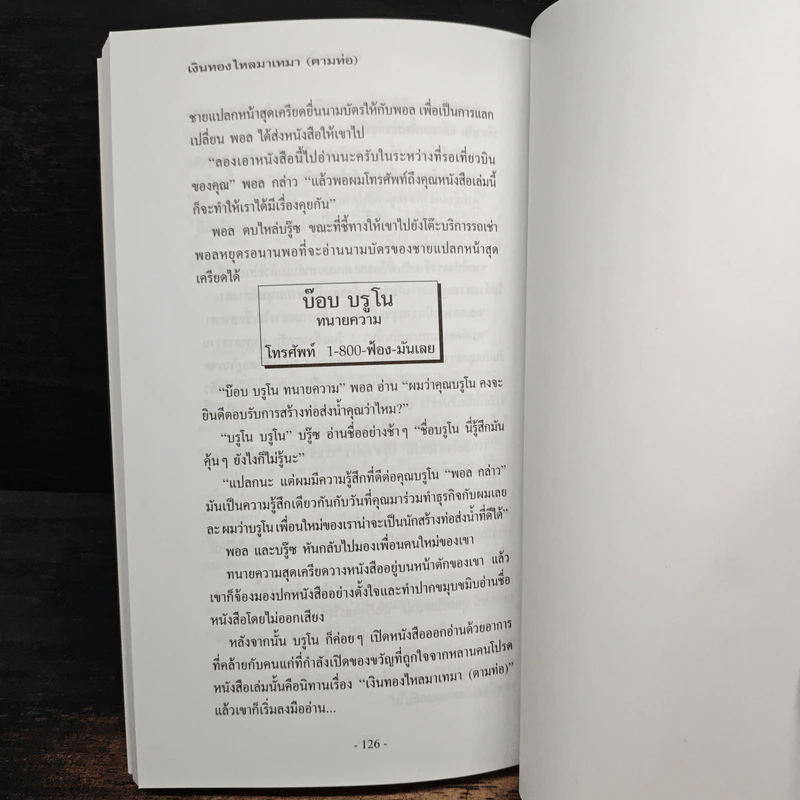 เงินทองไหลมาเทมา (ตามท่อ)
ชายแปลกหน้าสุดเครียดยื่นนามบัตรให้กับพอล เพื่อเป็นการแลก
เปลี่ยน พอล ได้ส่งหนังสือให้เขาไป
“ลองเอาหนังสือนี้ไปอ่านนะครับในระหว่างที่รอเที่ยวบิน
ของคุณ” พอล กล่าว “แล้วพอผมโทรศัพท์ถึงคุณหนังสือเล่มนี้
ก็จะทำให้เราได้มีเรื่องคุยกัน”
พอล ตบไหล่บรู๊ซ ขณะที่ชี้ทางให้เขาไปยังโต๊ะบริการรถเช่า
พอลหยุดรอนานพอที่จะอ่านนามบัตรของชายแปลกหน้าสุด
เครียดได้
บ๊อบ บรูโน
ทนายความ
โทรศัพท์ 1-800-ฟ้อง-มันเลย
“บ๊อบ บรูโน ทนายความ” พอล อ่าน “ผมว่าคุณบรูโน คงจะ
ยินดีตอบรับการสร้างท่อส่งน้ำคุณว่าไหม?”
“บรูโน บรูโน” บรู๊ซ อ่านชื่ออย่างช้าๆ “ชื่อบรูโน นี่รู้สึกมัน
คุ้นๆ ยังไงก็ไม่รู้นะ”
“แปลกนะ แต่ผมมีความรู้สึกที่ดีต่อคุณบรูโน “พอล กล่าว”
มันเป็นความรู้สึกเดียวกันกับวันที่คุณมาร่วมทำธุรกิจกับผมเลย
ละ ผมว่าบรูโนเพื่อนใหม่ของเราน่าจะเป็นนักสร้างท่อส่งน้ำที่ดีได้”
พอล และบรู๊ซ หันกลับไปมองเพื่อนคนใหม่ของเขา
ทนายความสุดเครียดวางหนังสืออยู่บนหน้าตักของเขา แล้ว
เขาก็จ้องมองปกหนังสืออย่างตั้งใจและทำปากขมุบขมิบอ่านชื่อ
หนังสือโดยไม่ออกเสียง
หลังจากนั้น บรูโน ก็ค่อยๆ เปิดหนังสือออกอ่านด้วยอาการ
ที่คล้ายกับคนแก่ที่กำลังเปิดของขวัญที่ถูกใจจากหลานคนโปรด
หนังสือเล่มนั้นคือนิทานเรื่อง “เงินทองไหลมาเทมา (ตามท่อ)”
แล้วเขาก็เริ่มลงมืออ่าน...
- 126 -